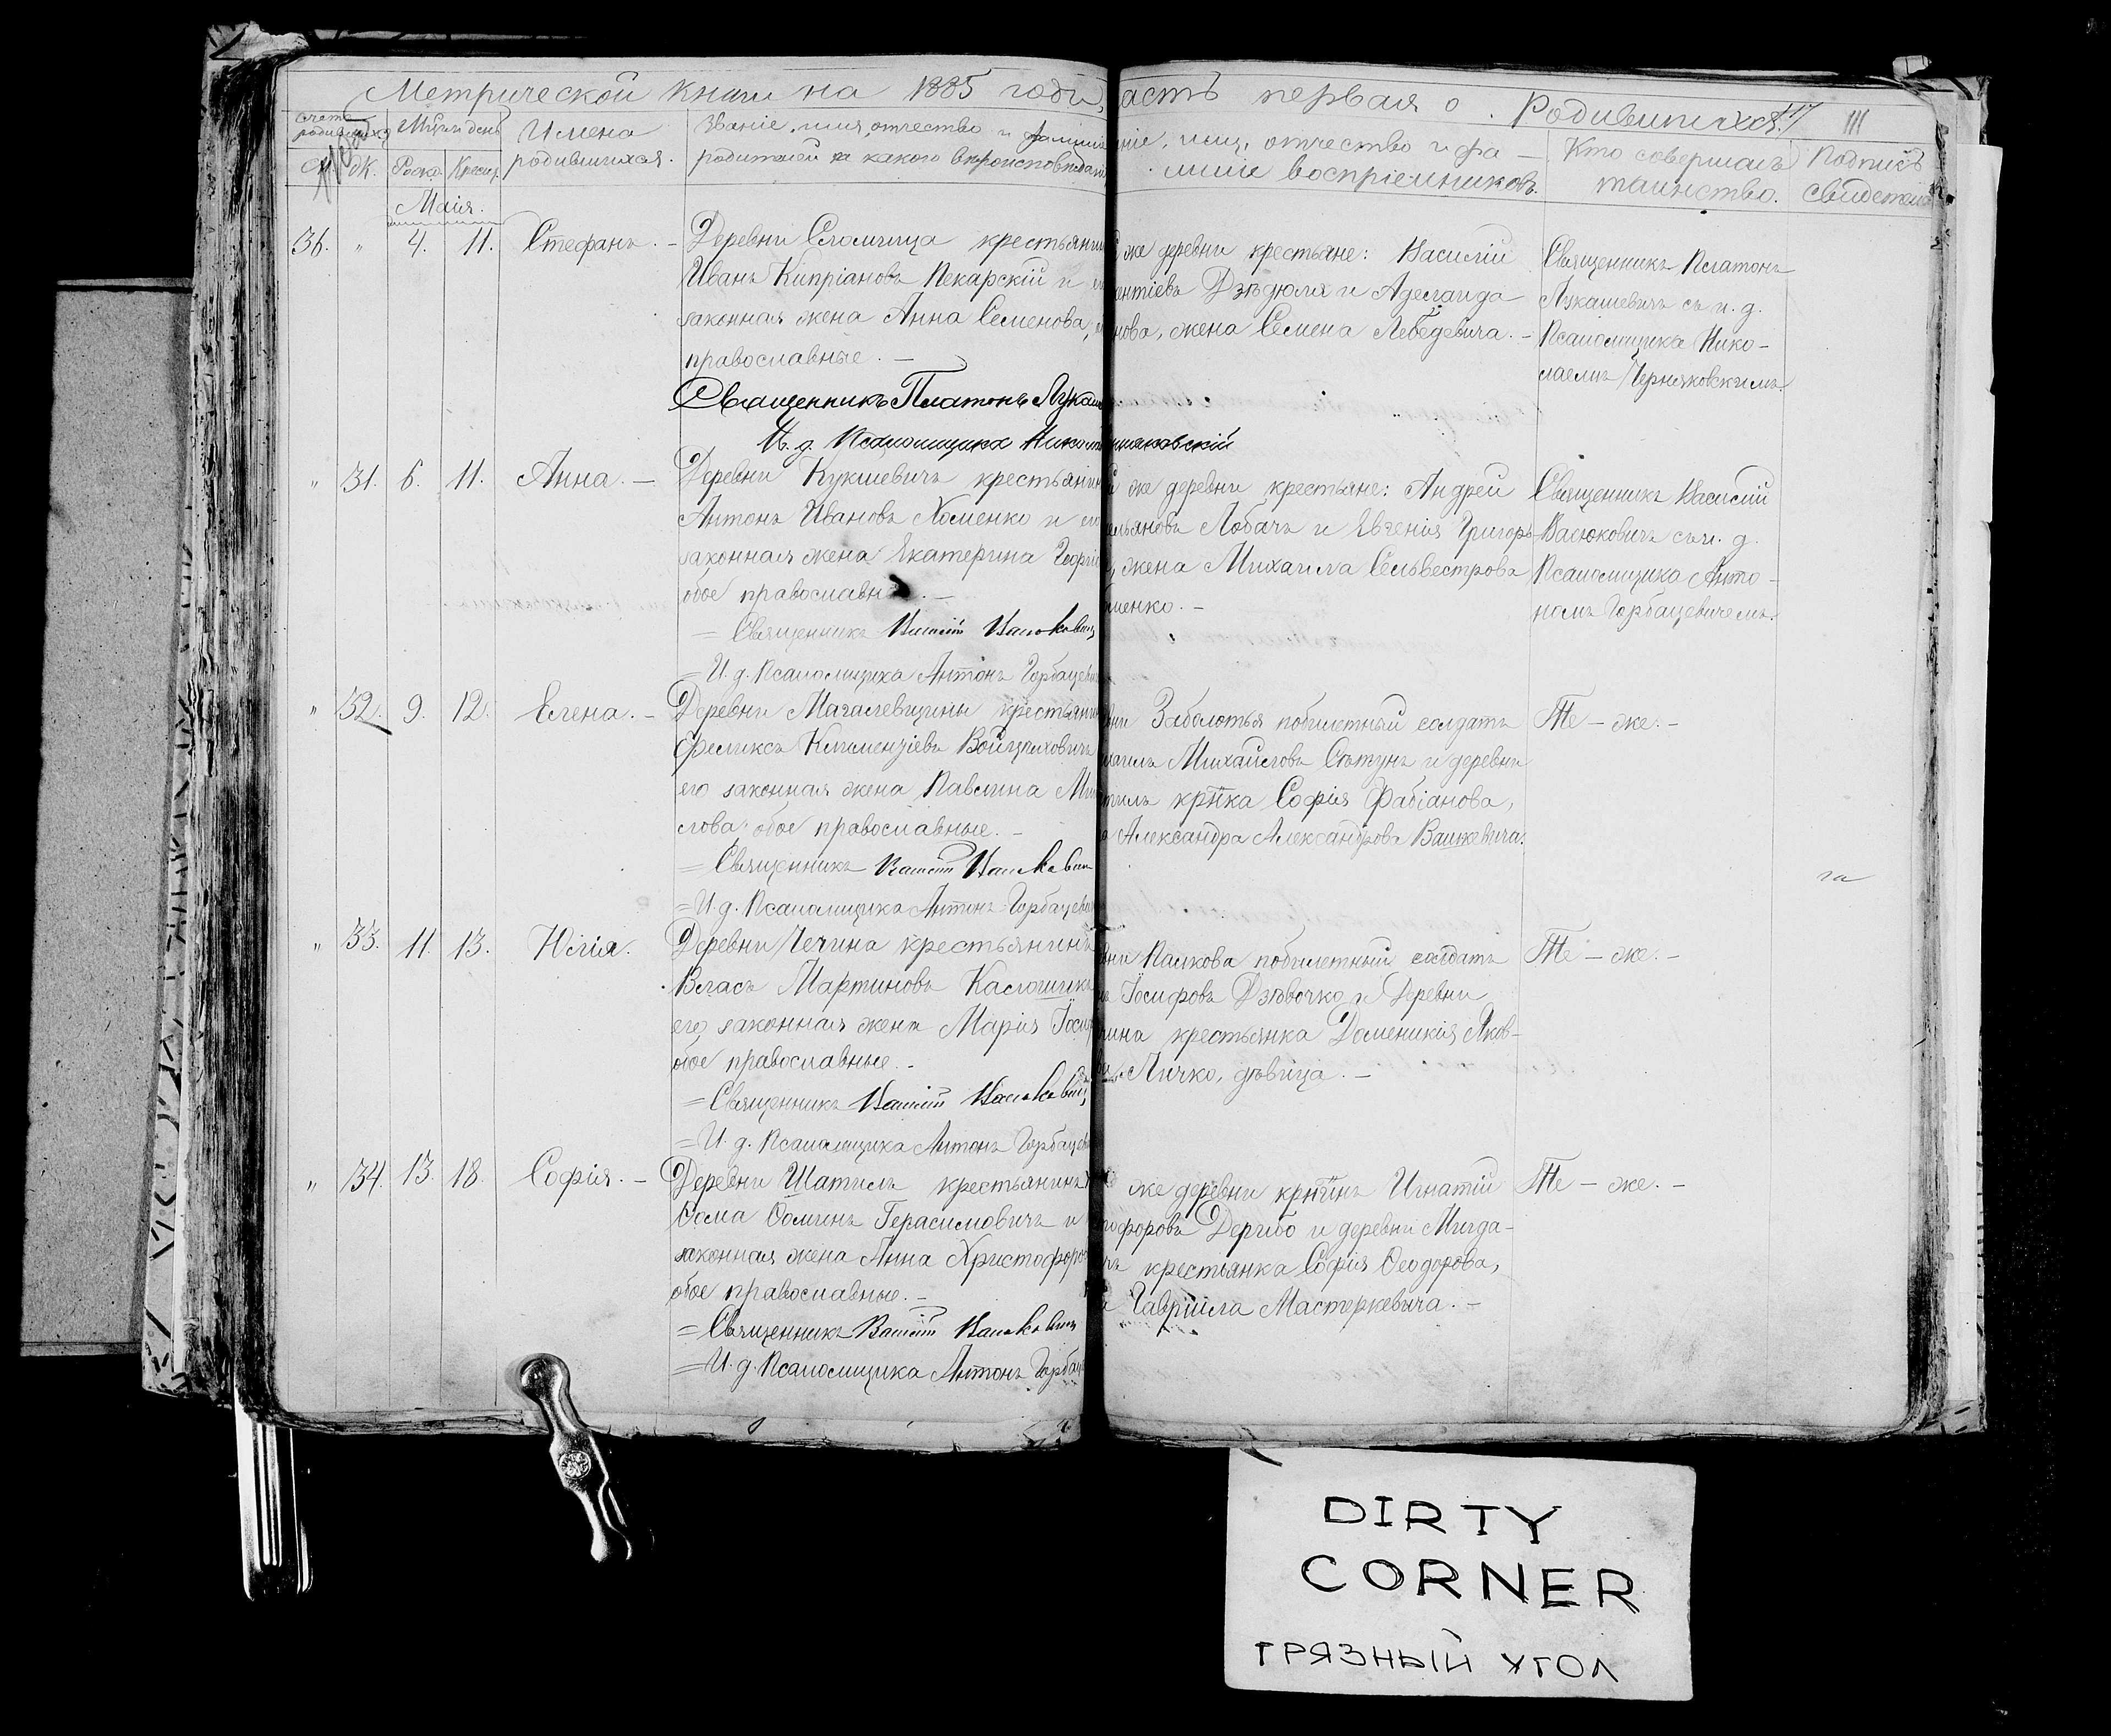 Метрической книги на 1885 годъ,
асть первая о Родившихся.
111
счетъ родившихся
Мѣсяцъ и день
Имена родившихся.
Званіе, имя, отчество и фамилія
родителей и какого вѣроисповѣдан
ніе, имя, отчество и фа-
миліе воспріемниковъ.
Кто совершалъ
таинство.
Подпись
свидѣтел
М. Ж. Рожд. Крещ.
Маія.
36. " 4. 11. Стефанъ. -
Деревни Слогмица крестьянин
Иванъ Кипріановъ Пекарскій и ег
законная жена Анна Семенова,
православные. -
Священникъ Платонъ Лукаш
И. д. Псаломщика Никола
няковскій
же деревни крестьяне: Василій
ентіевъ Дзѣдюля и Аделаида
нова, жена Семена Лебедевича. -
Священникъ Платонъ
Лукашевичъ съ и. д.
Псаломщика Нико-
лаемъ Черняковскимъ.
" 31. 6. 11. Анна. -
Деревни Кукшевичъ крестьянин
Антонъ Ивановъ Хоменко и его
законная жена Екатерина Георгіе
обое православн. -
= Священникъ Василій Васюкович
= И. д. Псаломщика Антонъ Горбацеви
же деревни крестьяне: Андрей
ельяновъ Лобачъ и Евгенія Григорь
, жена Михаила Сельвестрова
менко. -
Священникъ Василій
Васюковичъ съ и. д.
Псаломщика Анто-
номъ Горбацевичемъ.
" 32. 9. 12. Елена. -
Деревни Магалевщины крестьянин
Феликсъ Климентіевъ Войцѣховичъ
его законная жена Павлина Ми
слова, обое православные. -
= Священникъ Василій Васюкович
= И. д. Псаломщика Антонъ Горбацеви
вни Заболотья побилетный солдатъ
хаилъ Михайловъ Сѣтунъ и деревни
тилъ кр̃нка Софія Фабіанова,
а Александра Александрова Вашкевича.
Тѣ - же. -
" 33. 11. 13. Юлія.
Деревни Чечина крестьянинъ
Власъ Мартиновъ Каслошикъ
его законная жена Марія Іоси
обое православные. -
= Священникъ Василій Васюкович
= И. д. Псаломщика Антонъ Горбацев
вни Палкова побилетный солдатъ
Іосифовъ Дзѣвочко и Деревни
чина крестьянка Доменикія Яков-
Личко, дѣвица. -
Тѣ - же. -
" 34. 13. 18. Софія. -
Деревни Шатилъ крестьянинъ
Ѳома Ѳоминъ Герасимовичъ и
законная жена Анна Христофоро
обое православные. -
= Священникъ Василій Васюкович
= И. д. Псаломщика Антонъ Горбац
же деревни кр̃нинъ Игнатій
тофоровъ Дергибо и деревни Мигда-
чъ крестьянка Софія Ѳеодорова,
а Гавріила Мастеркевича. -
Тѣ - же. -
DIRTY
CORNER
ГРЯЗНЫЙ УГОЛ